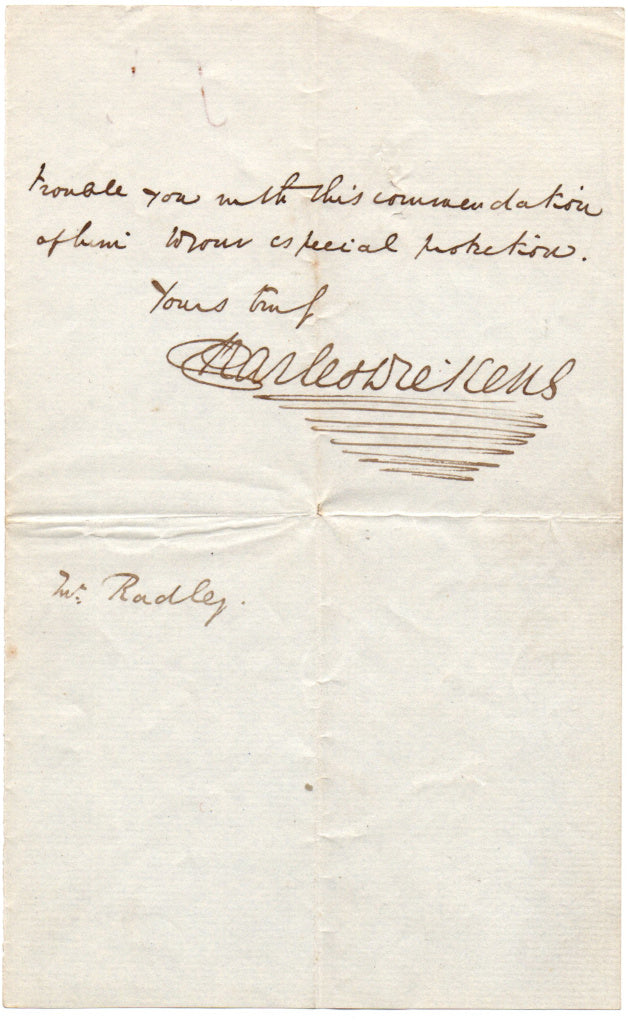 trouble you with this commendation
of him to your especial protection.
Yours truly
Charles Dickens
Mr. Radley.